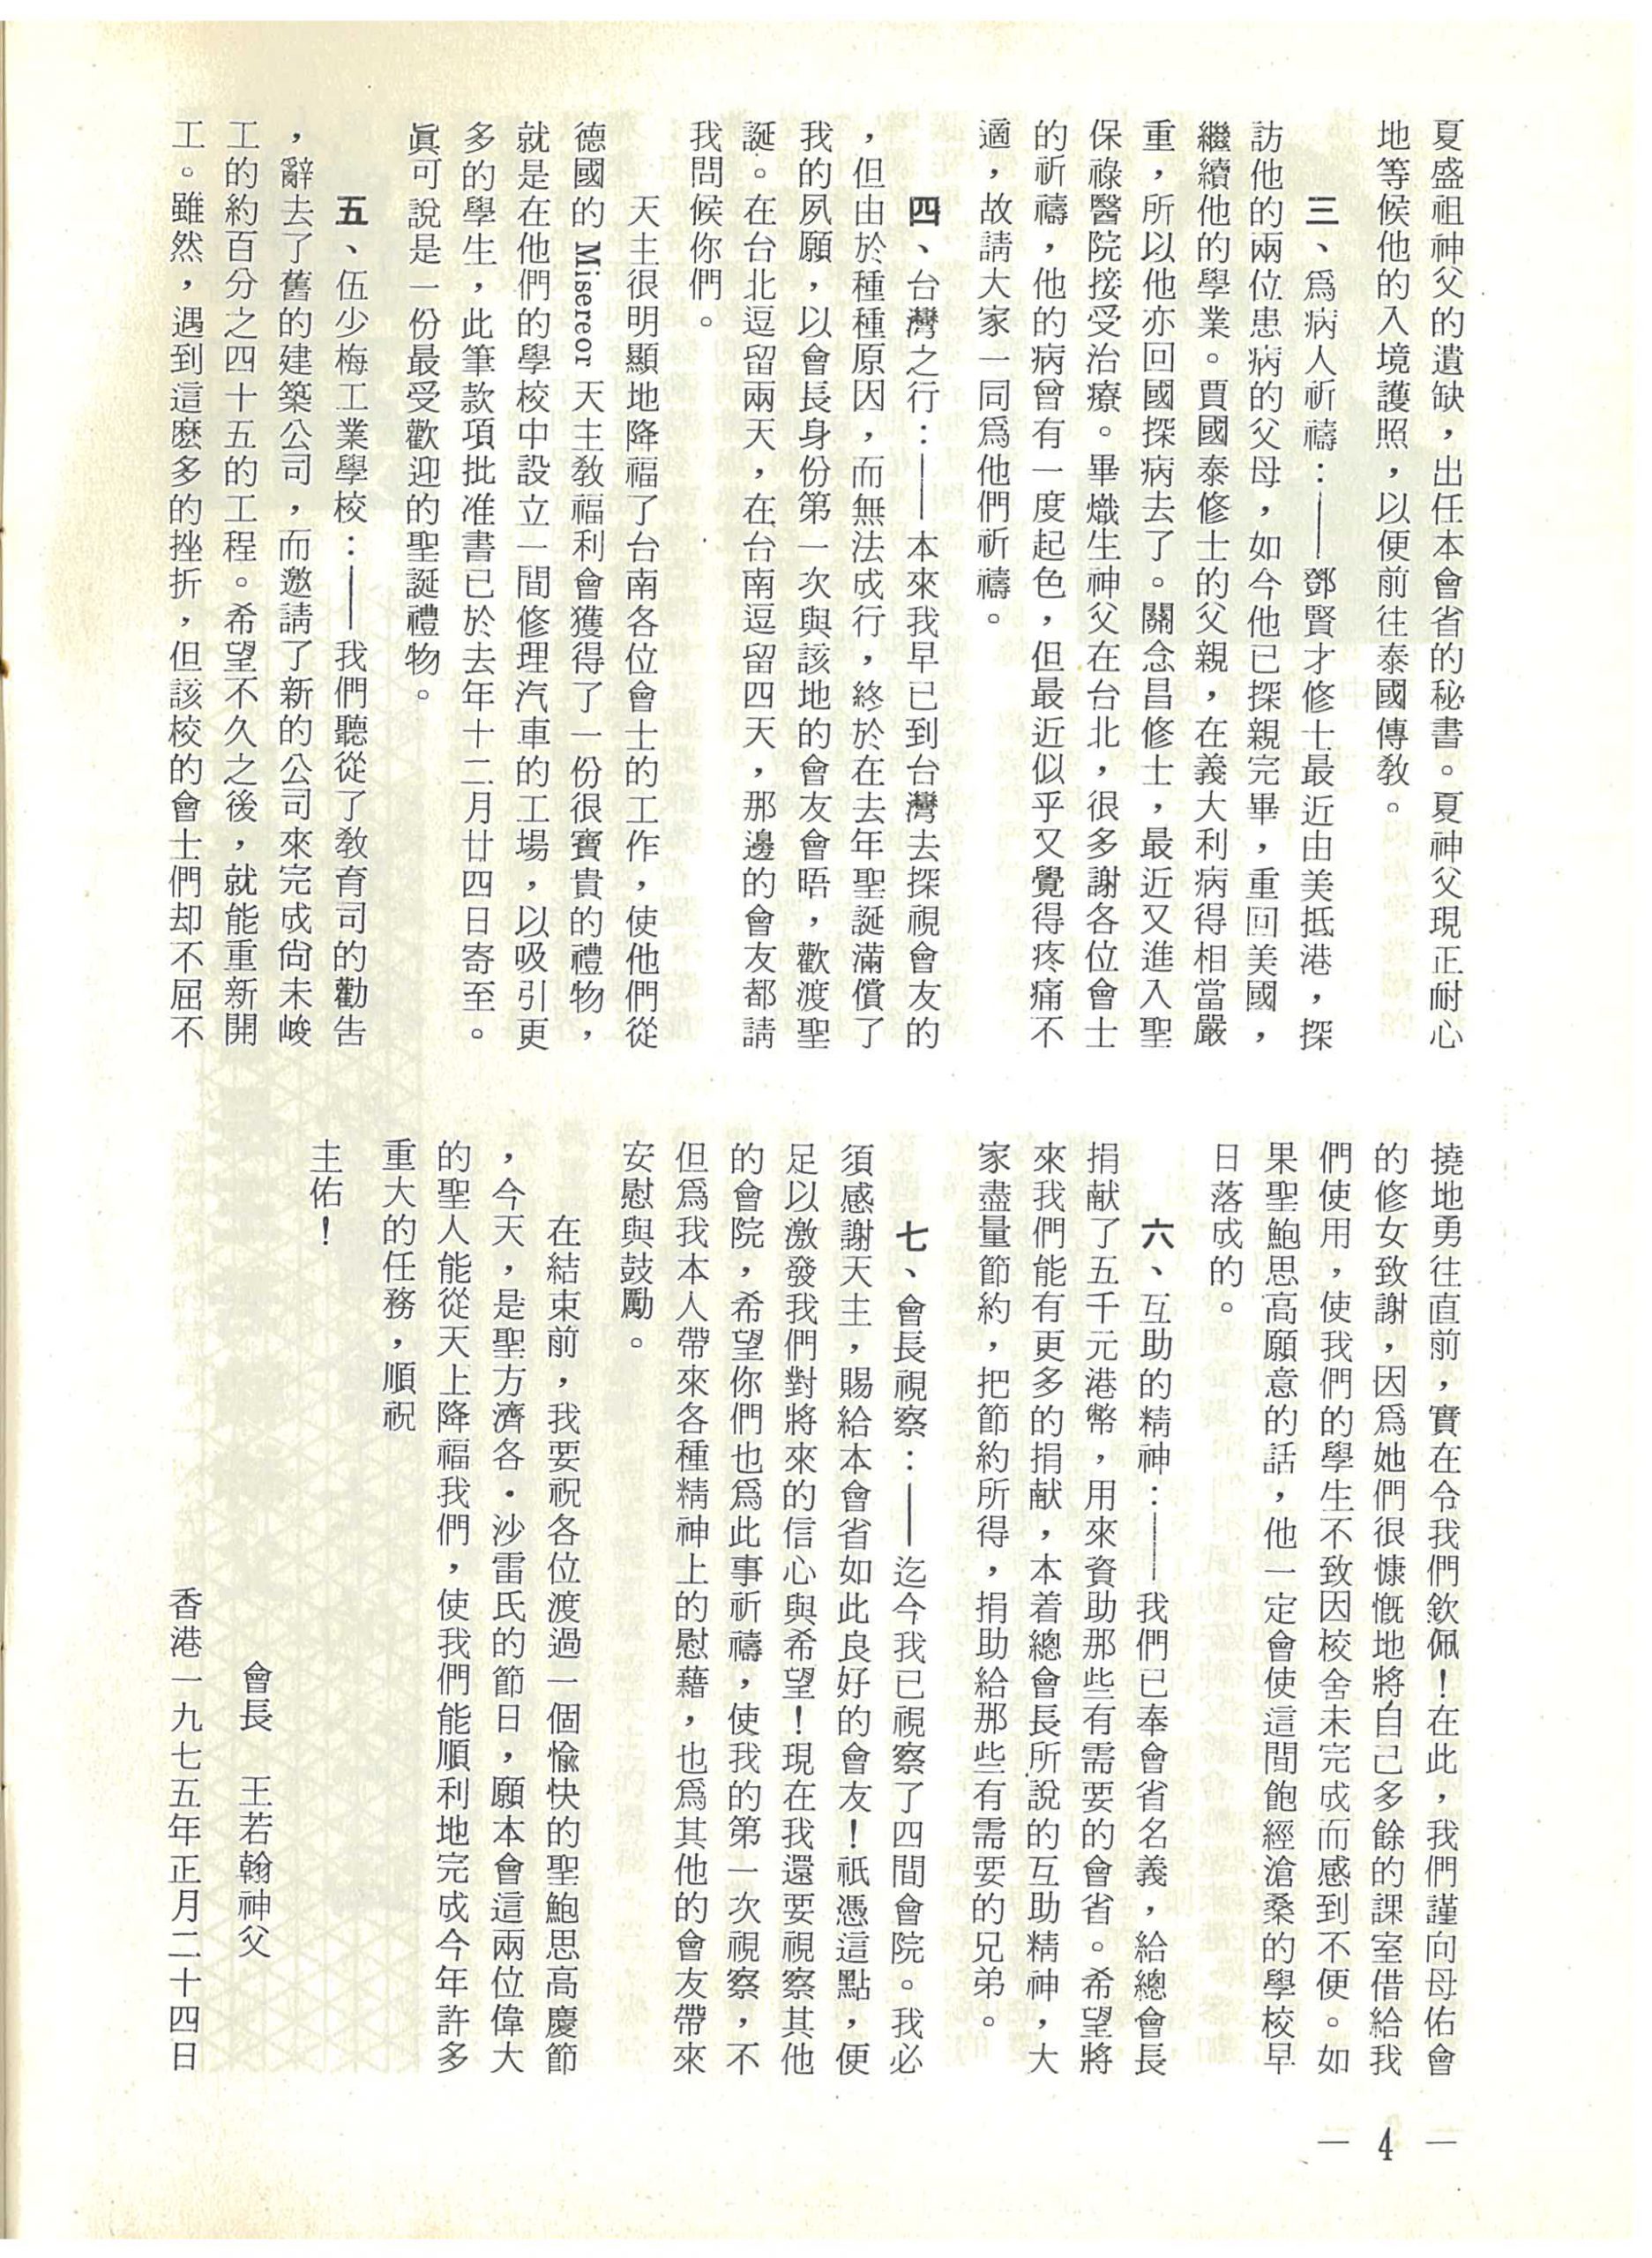 夏盛祖神父的遺缺，出任本會省的秘書。夏神父現正耐心
地等候他的入境護照，以便前往泰國傳敎。
三、爲病人祈禱：——鄧賢才修士最近由美抵港，探
訪他的兩位患病的父母，如今他已探親完畢，重回美國，
繼續他的學業。賈國泰修士的父親，在義大利病得相當嚴
重，所以他亦回國探病去了。關念昌修士，最近又進入聖
保祿醫院接受治療。畢熾生神父在台北，很多謝各位會士
的祈禱，他的病曾有一度起色，但最近似乎又覺得疼痛不
適，故請大家一同爲他們祈禱。
四、台灣之行：——本來我早已到台灣去探視會友的
，但由於種種原因，而無法成行，終於在去年聖誕滿償了
我的夙願，以會長身份第一次與該地的會友會晤，歡渡聖
誕。在台北逗留兩天，在台南逗留四天，那邊的會友都請
我問候你們。
天主很明顯地降福了台南各位會士的工作，使他們從
德國的 Misereor 天主敎福利會獲得了一份很寶貴的禮物，
就是在他們的學校中設立一間修理汽車的工場，以吸引更
多的學生，此筆款項批准書已於去年十二月廿四日寄至。
眞可說是一份最受歡迎的聖誕禮物。
五、伍少梅工業學校：——我們聽從了敎育司的勸告
，辭去了舊的建築公司，而邀請了新的公司來完成尙未峻
工的約百分之四十五的工程。希望不久之後，就能重新開
工。雖然，遇到這麽多的挫折，但該校的會士們却不屈不
撓地勇往直前，實在令我們欽佩！在此，我們謹向母佑會
的修女致謝，因爲她們很慷慨地將自己多餘的課室借給我
們使用，使我們的學生不致因校舍未完成而感到不便。如
果聖鮑思高願意的話，他一定會使這間飽經滄桑的學校早
日落成的。
六、互助的精神：——我們已奉會省名義，給總會長
捐献了五千元港幣，用來資助那些有需要的會省。希望將
來我們能有更多的捐献，本着總會長所說的互助精神，大
家盡量節約，把節約所得，捐助給那些有需要的兄弟。
七、會長視察：——迄今我已視察了四間會院。我必
須感謝天主，賜給本會省如此良好的會友！祇憑這點，便
足以激發我們對將來的信心與希望！現在我還要視察其他
的會院，希望你們也爲此事祈禱，使我的第一次視察，不
但爲我本人帶來各種精神上的慰藉，也爲其他的會友帶來
安慰與鼓勵。
在結束前，我要祝各位渡過一個愉快的聖鮑思高慶節
，今天，是聖方濟各・沙雷氏的節日，願本會這兩位偉大
的聖人能從天上降福我們，使我們能順利地完成今年許多
重大的任務，順祝
主佑！
會長　王若翰神父
香港一九七五年正月二十四日
— 4 —